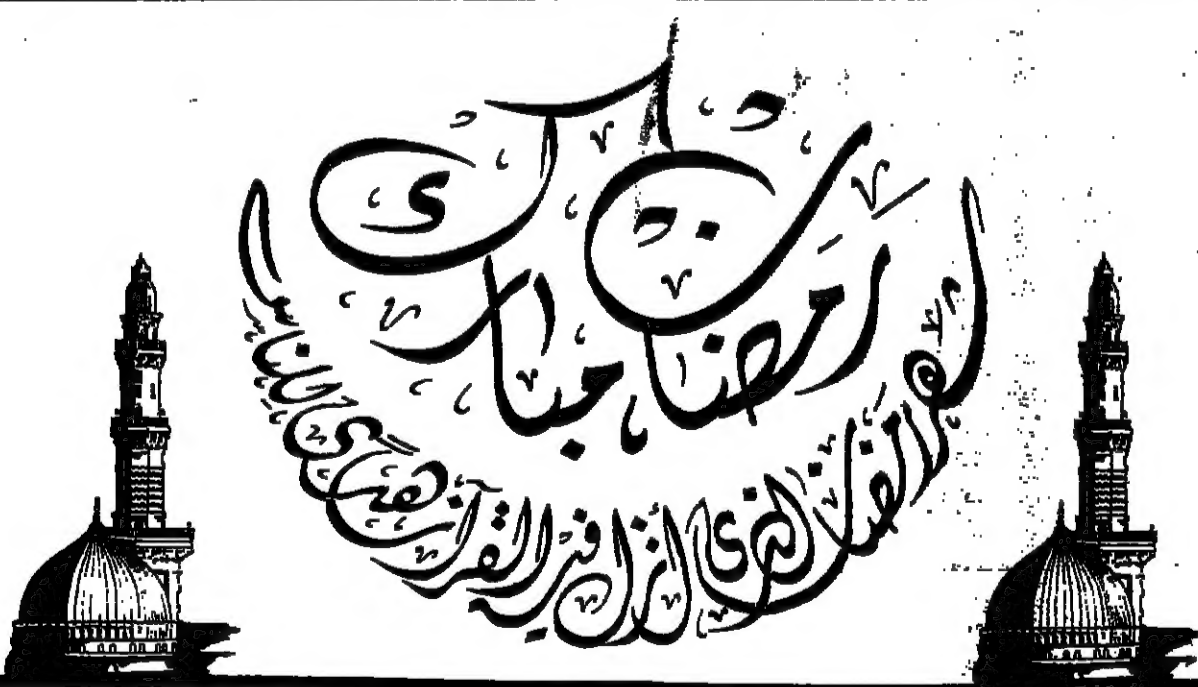 رمضان مبارك
شهر رمضان الذي أنزل فيه القرآن هدى للناس